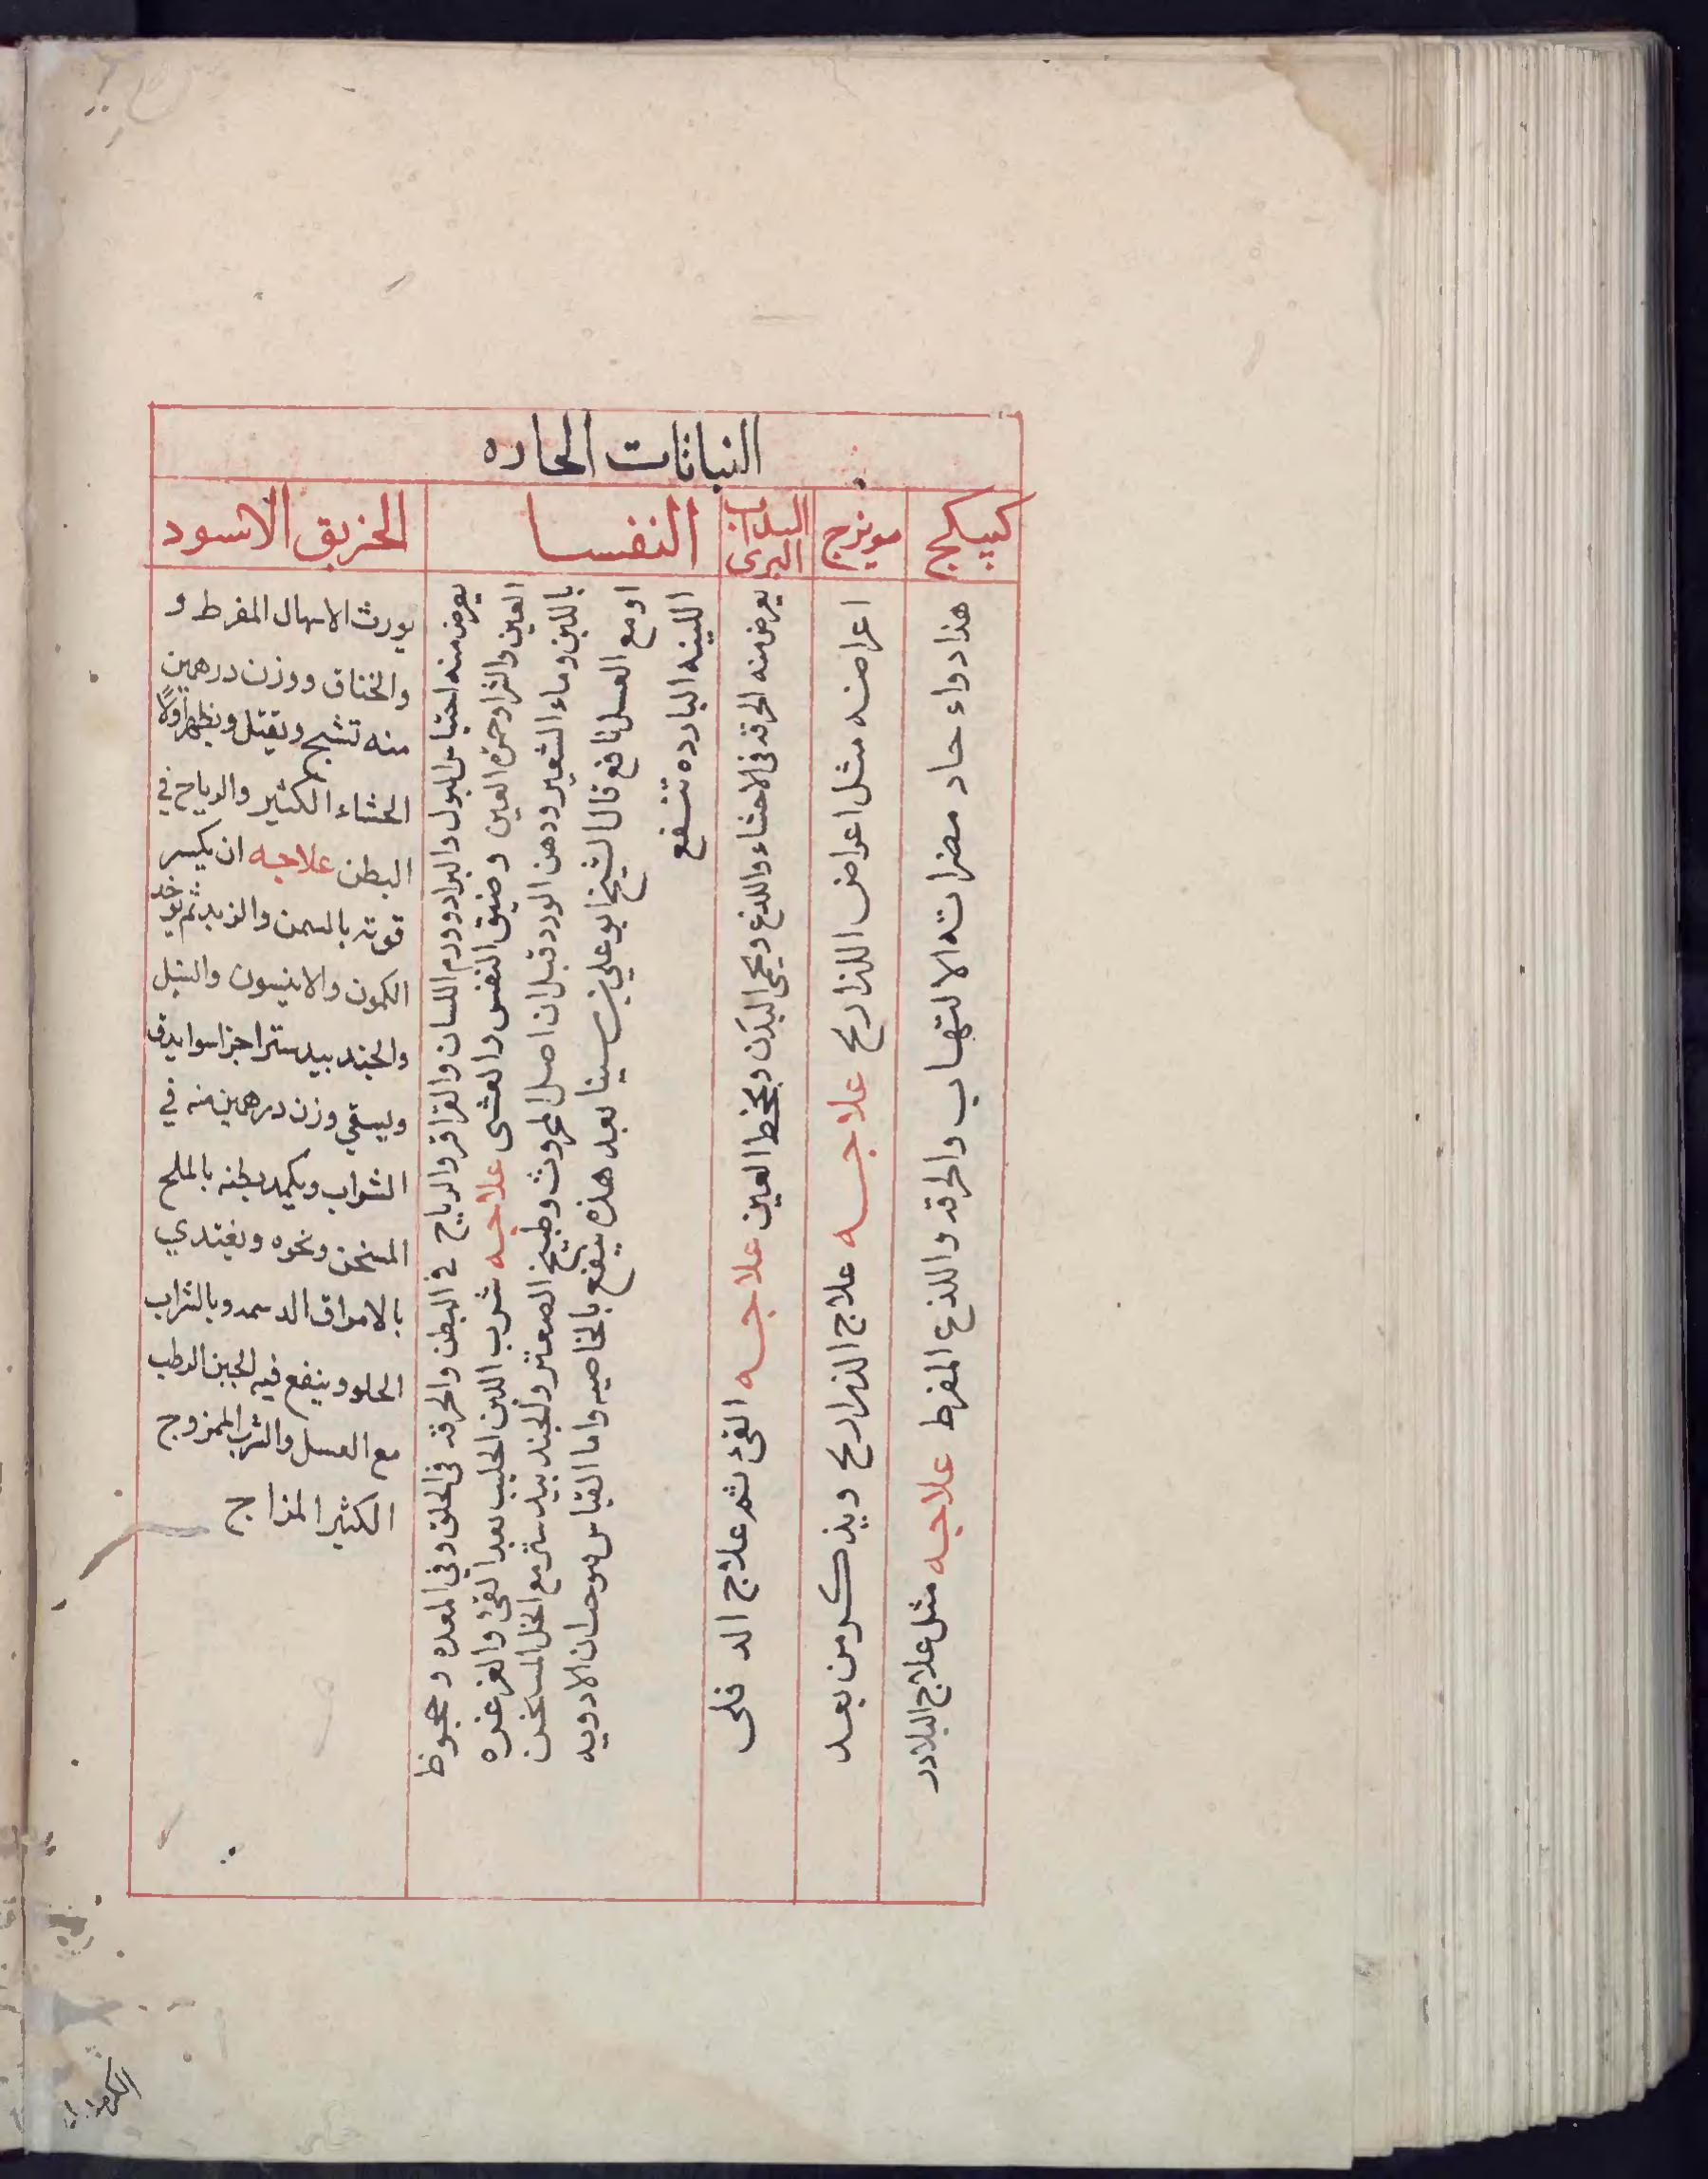 النباتات الحاره
كبيكج
هذا دواء حاد مضراته الالتهاب والحرقه واللذع المفرط علاجه مثل علاج البلادر
مويزج
اعراضه مثل اعراض الذراريح علاجه علاج الذراريح ويذكر من بعد
السداب
البرى
يعرض منه الحرقه فى الاحشاء واللذع ويحمى البدن وبجخط العين علاجه القئ ثم علاج الدفلى
النفسا
يعرض منه احتباس البول والبراد وورم اللسان والقراقر والرياح فى البطن والحرقه فى الحلق وفى المعده وجحوظ
العين والثرا وحمره العين وضيق النفس والغشى علاجه شرب اللبن الحليب بعد القئ والغرغره
باللبن وماء الشعير ودهن الورد قبل ان اصل المحروث وطبيخ الصعتر والجندبيدستر مع الخل المسخن
او مع العسل نافع قال الشيخ ابو علي بن سينا بعد هذه ينفع بالخاصيه واما القياس موحسان الادويه
اللينه البارده تنفع
الخربق الاسود
يورث الاسهال المفرط و
والخناق ووزن درهمين
منه تشنج ويقتل ويظهر اولا
الجشاء الكثير والرياح في
البطن علاجه ان يكسر
قوته بالسمن والزبد ثم
الكمون والانيسون والسنبل
والجندبيدستر اجزا سوا يدق
ويسقي وزن درهمين منه في
الشراب ويكمد بطنه بالملح
المسخن ونحوه ويغتدي
بالامراق الدسمه وبالشراب
الحلو وينفع فيه الجبن الرطب
مع العسل والشراب الممزوج
الكثير المزاج